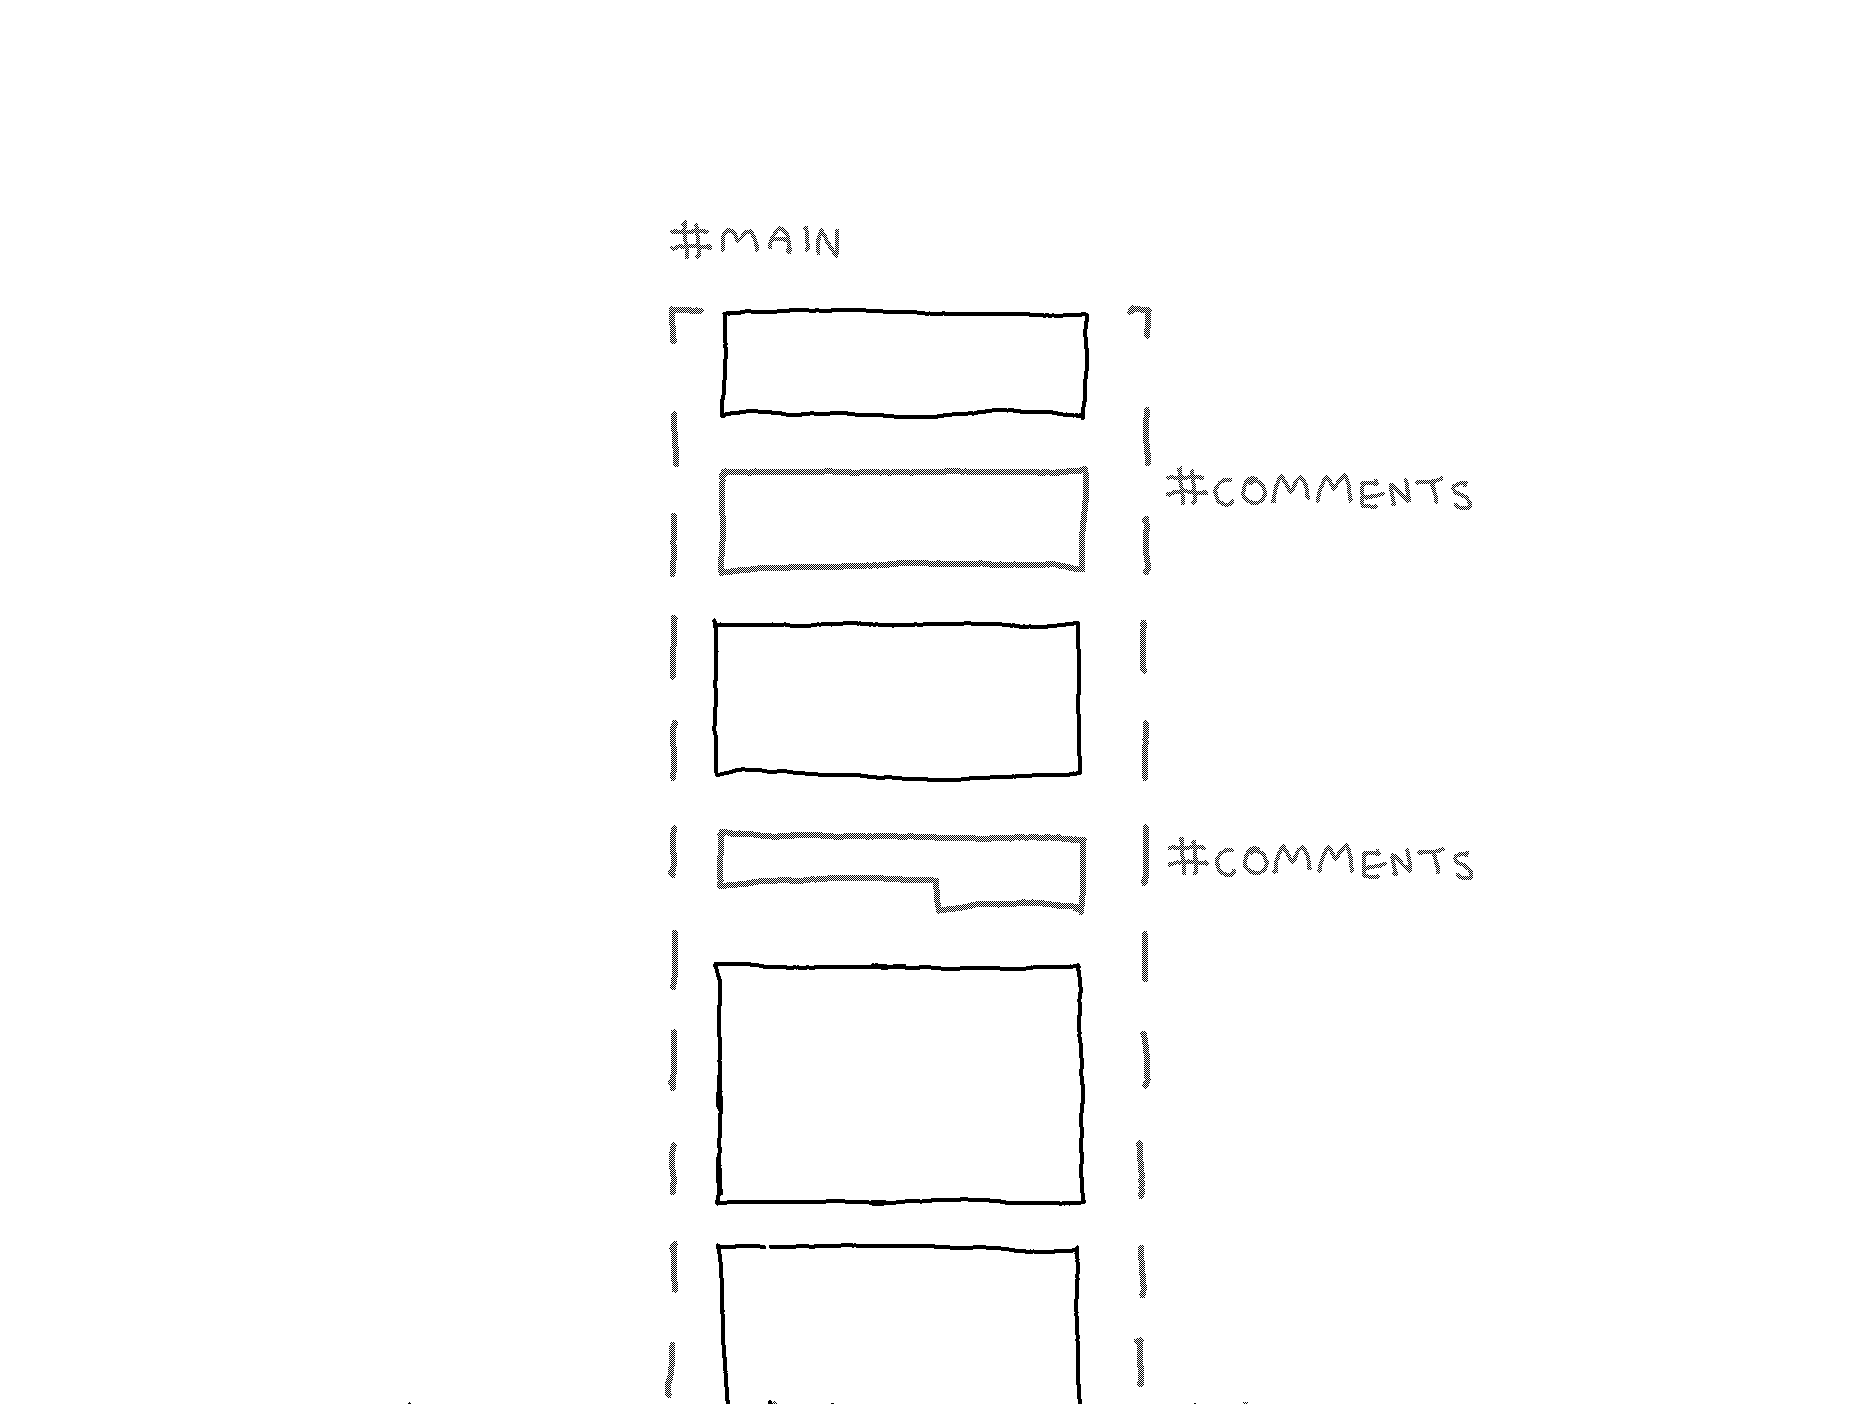 #MAIN
#COMMENTS
#COMMENTS